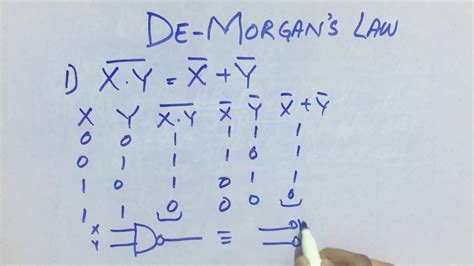 DE-MORGAN'S LAW
1) X̅.̅Y̅ = X̅ + Y̅
X Y X̅.̅Y̅ X̅ Y̅ X̅ + Y̅
0 0 1 1 1 1
0 1 1 1 0 1
1 0 1 0 1 1
1 1 0 0 0 0
X ≡
Y